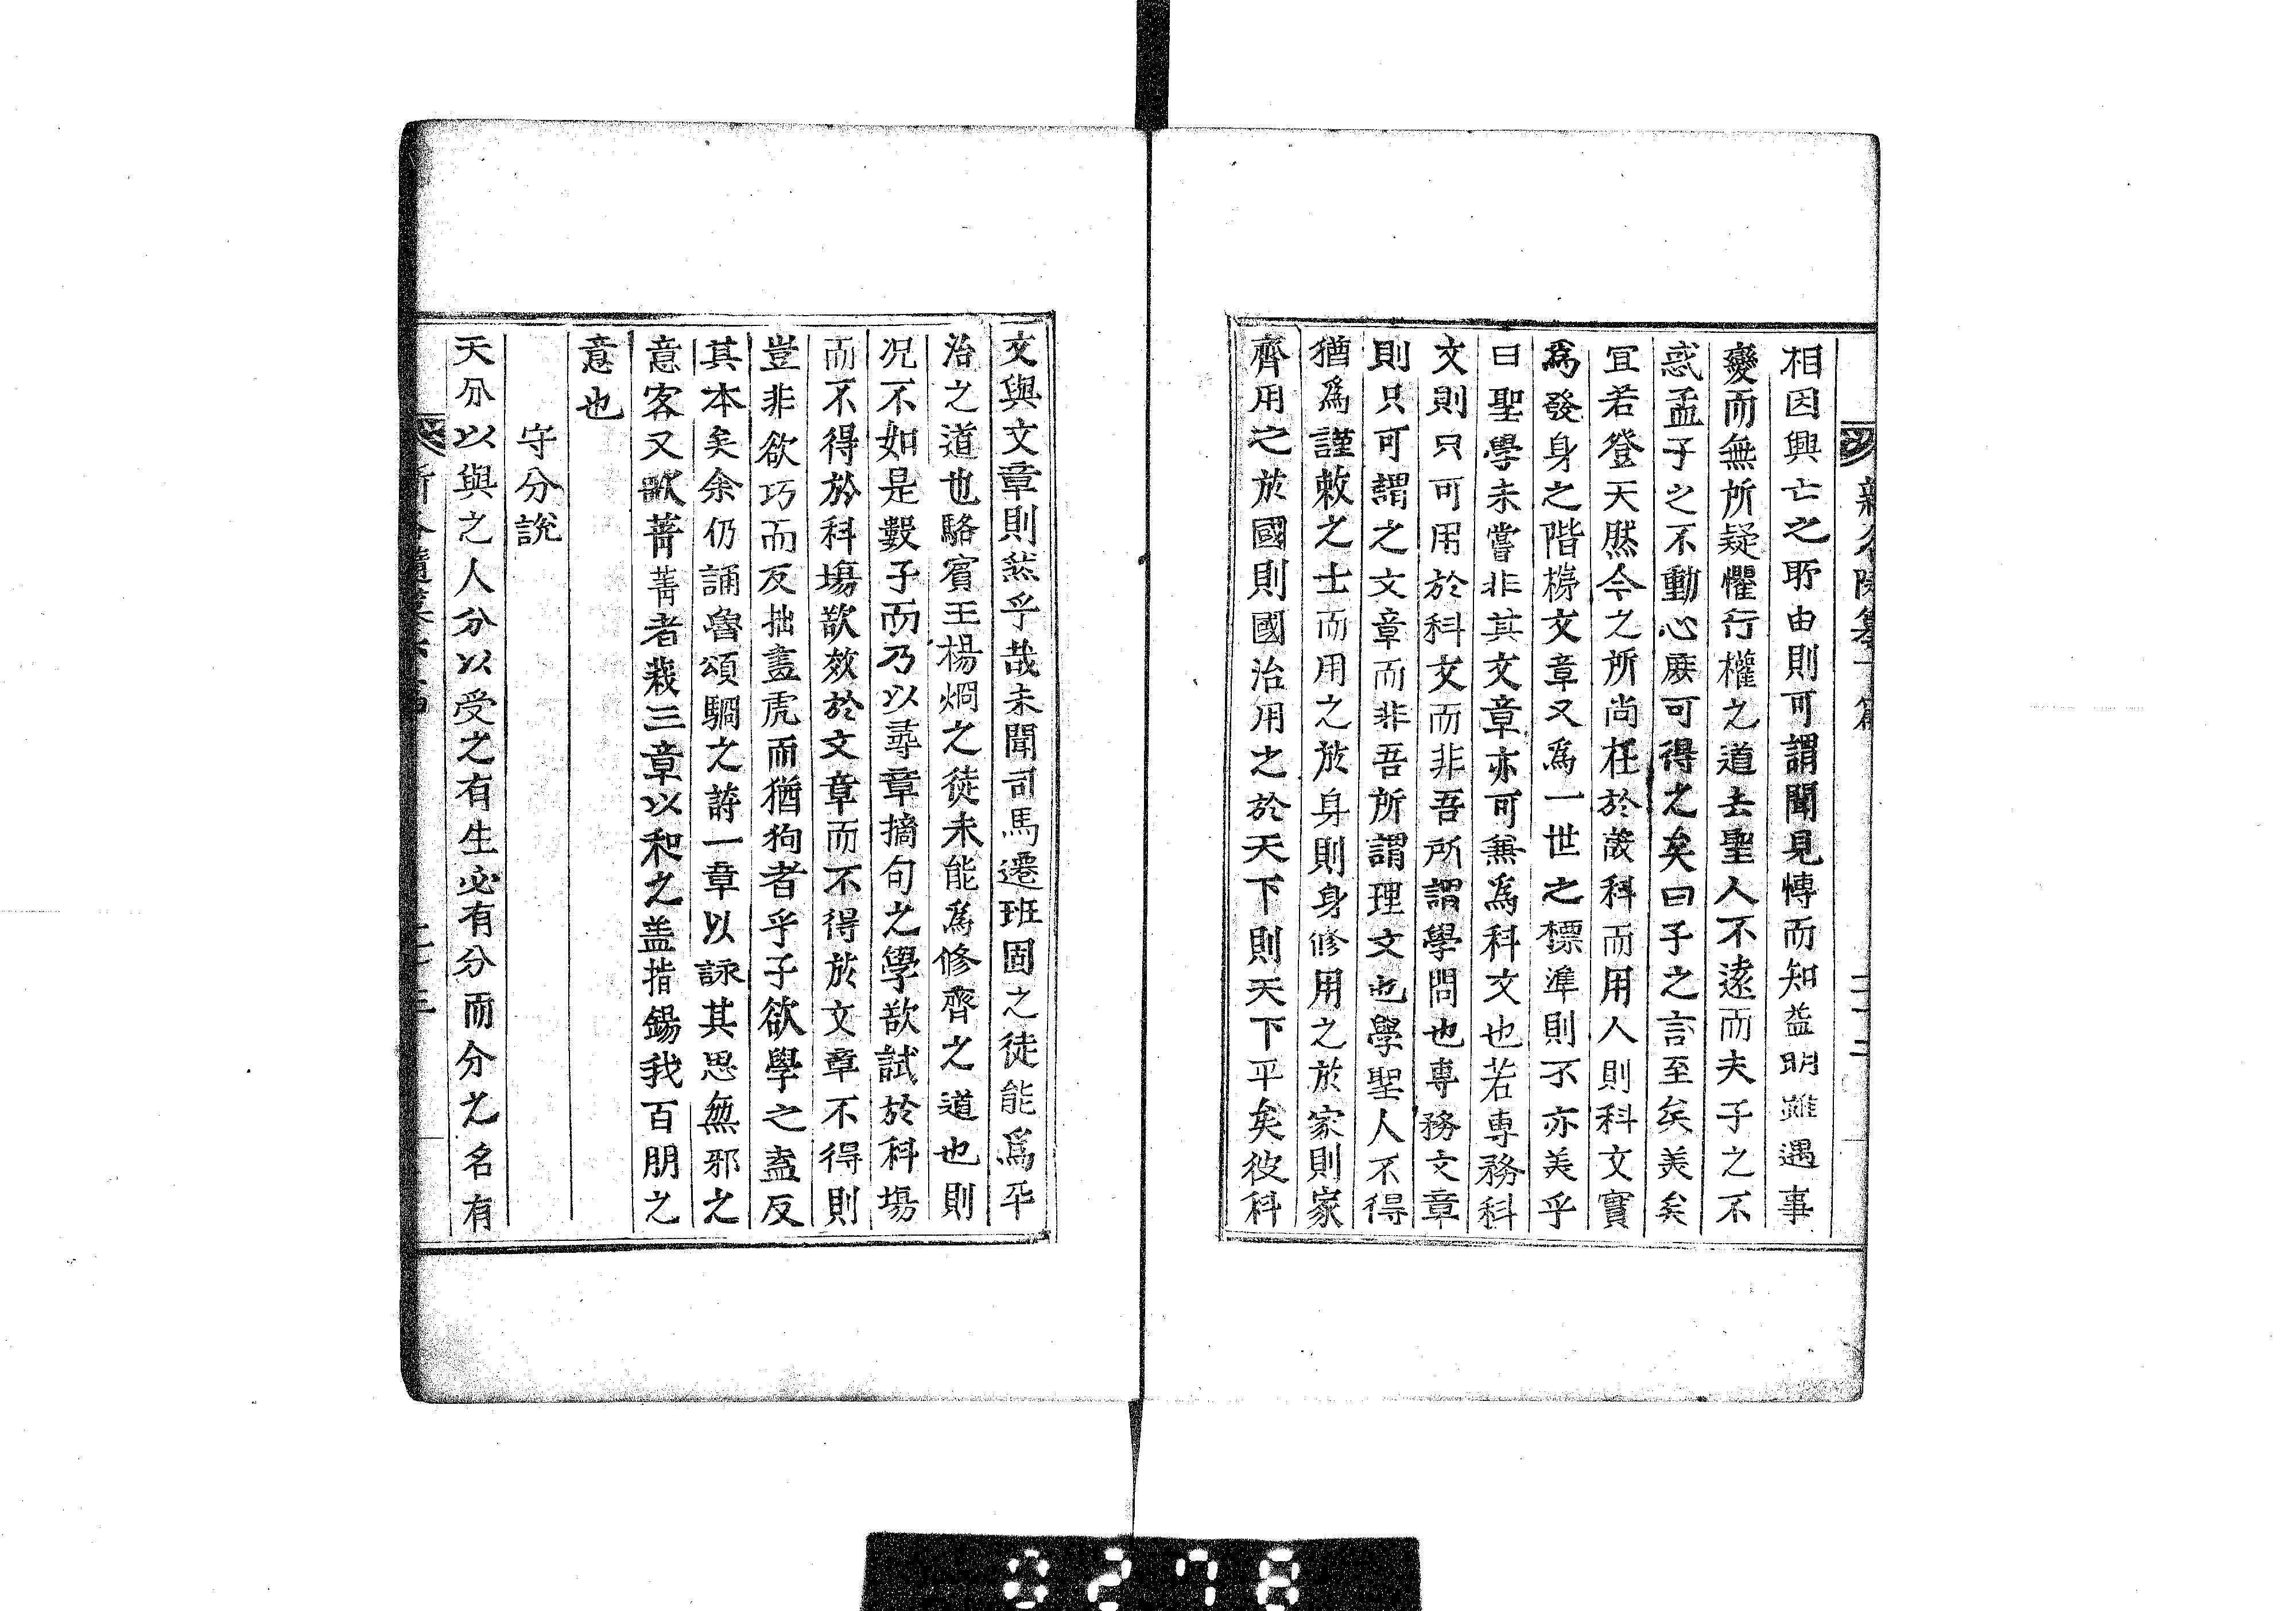 相因興亡之所由則可謂聞見博而知益明雖遇事
變而無所疑懼行權之道去聖人不遠而夫子之不
惑孟子之不動心庶可得之矣曰子之言至矣美矣
宜若登天然今之所尚在於設科而用人則科文實
爲發身之階梯文章又爲一世之標準則不亦美乎
曰聖學未嘗非其文章亦可兼爲科文也若專務科
文則只可用於科文而非吾所謂學問也專務文章
則只可謂之文章而非吾所謂理文也學聖人不得
猶爲謹敕之士而用之於身則身修用之於家則家
齊用之於國則國治用之於天下則天下平矣彼科
文與文章則然乎哉未聞司馬遷班固之徒能爲平
治之道也駱賓王楊烱之徒未能爲修齊之道也則
况不如是數子而乃以尋章摘句之學欲試於科塲
而不得於科塲欲效於文章而不得於文章不得則
豈非欲巧而反拙畵虎而猶狗者乎子欲學之盍反
其本矣余仍誦魯頌駉之詩一章以詠其思無邪之
意客又歌菁菁者莪三章以和之盖指錫我百朋之
意也
守分說
天分以與之人分以受之有生必有分而分之名有